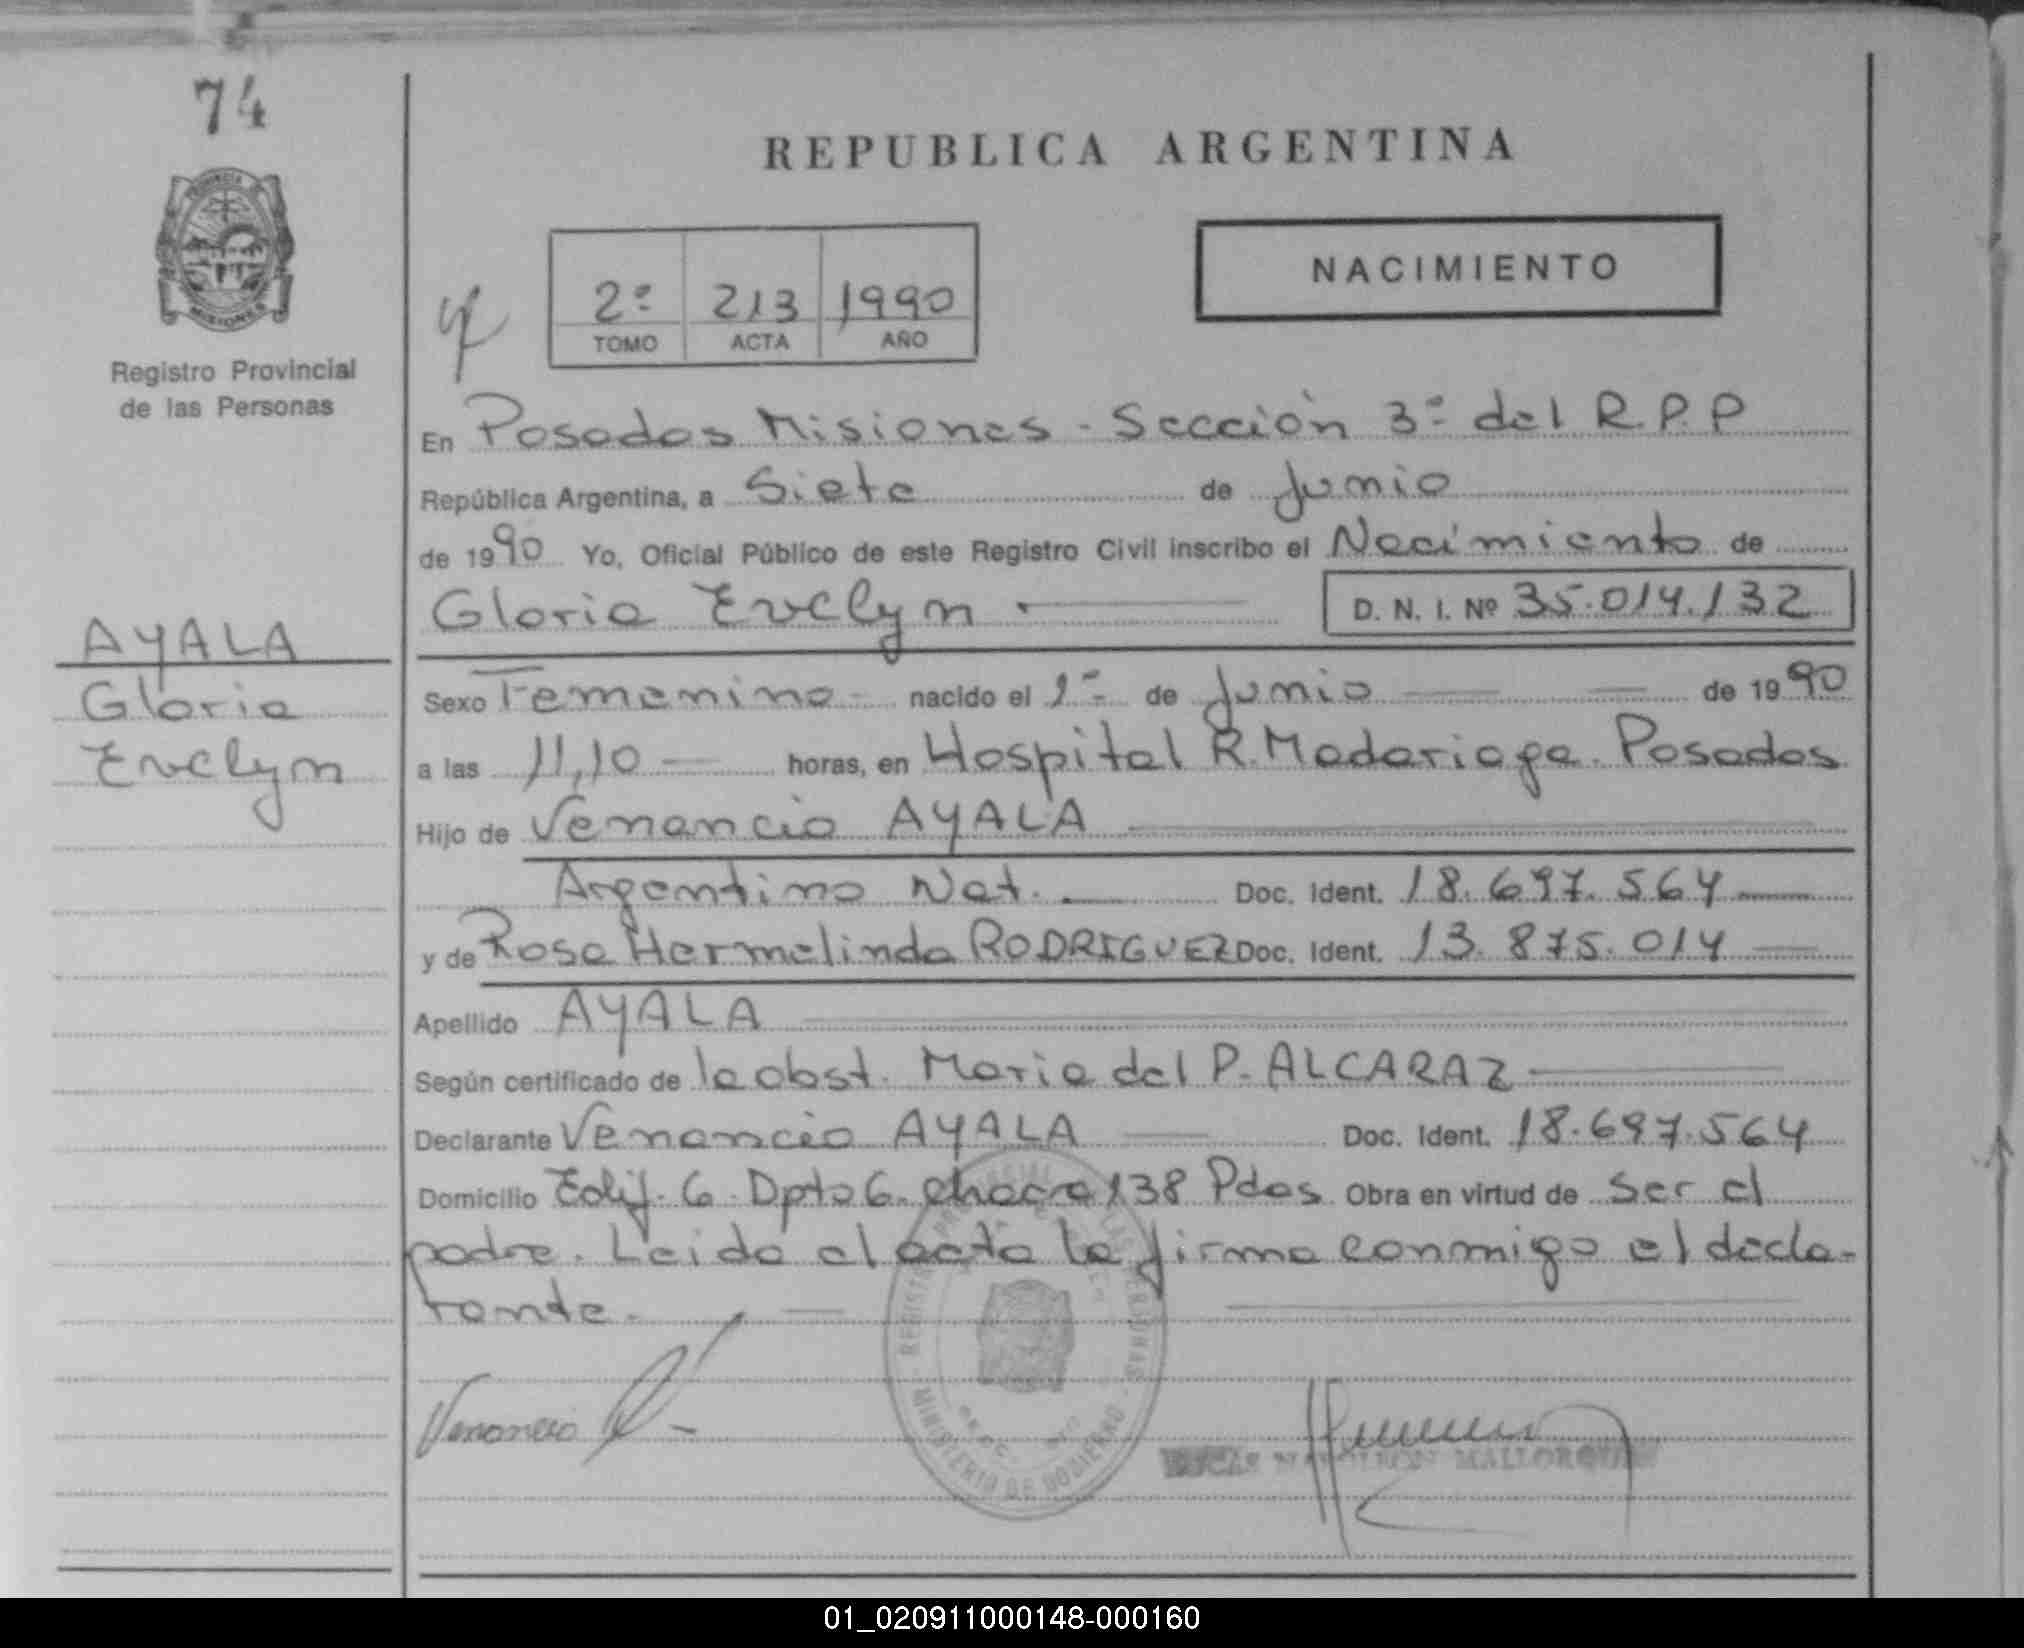 74
REPUBLICA ARGENTINA
PROVINCIA DE
MISIONES
Registro Provincial
de las Personas
NACIMIENTO
2º 213 1990
TOMO ACTA AÑO
En Posadas Misiones - Sección 3º del R.P.P
República Argentina, a Siete de Junio
de 1990 Yo, Oficial Público de este Registro Civil inscribo el Nacimiento de
Gloria Evelyn D. N. I. Nº 35.014.132
AYALA
Gloria
Evelyn
Sexo Femenino nacido el 1º de Junio de 1990
a las 11,10 horas, en Hospital R. Madariaga. Posadas
Hijo de Venancio AYALA
Argentino Nat. Doc. Ident. 18.697.564
y de Rosa Hermelinda RODRIGUEZ Doc. Ident. 13.875.014
Apellido AYALA
Según certificado de la obst. Maria del P. ALCARAZ
Declarante Venancio AYALA Doc. Ident. 18.697.564
Domicilio Edif. 6. Dpto 6. chacra 138 Pdas Obra en virtud de ser el
padre. Leida el acta la firma conmigo el decla-
rante.
Venancio
NAPOLEON MALLORQUIN
MINISTERIO DE GOBIERNO
01_020911000148-000160